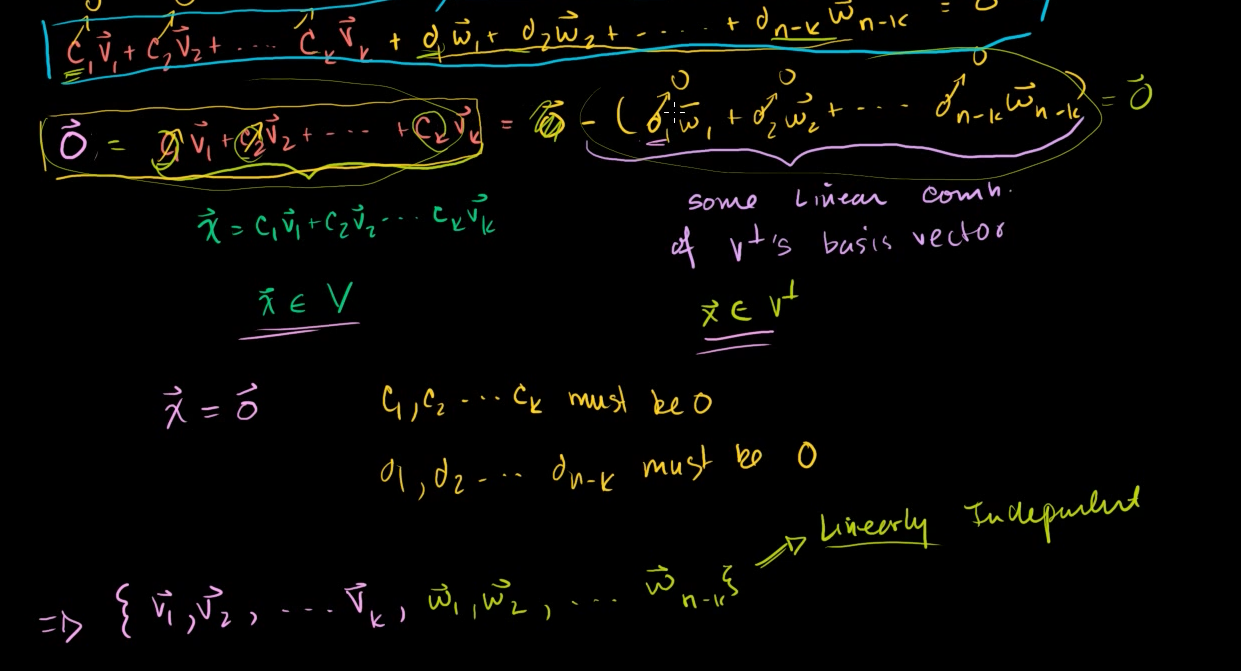 0 0 0
c₁v⃗₁ + c₂v⃗₂ + .... cₖv⃗ₖ + d₁w⃗₁ + d₂w⃗₂ + ..... + dₙ₋ₖw⃗ₙ₋ₖ = 0
0⃗ = c₁v⃗₁ + c₂v⃗₂ + ... + cₖv⃗ₖ = - (d₁w⃗₁ + d₂w⃗₂ + ... dₙ₋ₖw⃗ₙ₋ₖ) = 0⃗
0 0 0
x⃗ = c₁v⃗₁ + c₂v⃗₂ ... cₖv⃗ₖ
some linear comb.
of V⊥'s basis vector
x⃗ ∈ V
x⃗ ∈ V⊥
x⃗ = 0⃗
c₁, c₂ ... cₖ must be 0
d₁, d₂ ... dₙ₋ₖ must be 0
Linearly Independent
=> { v⃗₁, v⃗₂, .... v⃗ₖ, w⃗₁, w⃗₂, ... w⃗ₙ₋ₖ}